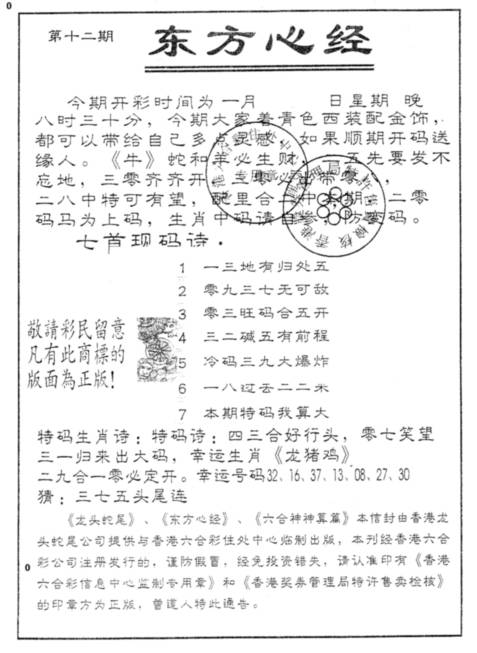 0
第十二期
东方心经
今期开彩时间为一月 日星期 晚
八时三十分，今期大家着青色西装配金饰，
都可以带给自己多点灵感，如果顺期开码送
缘人。《牛》蛇和羊必生财，一五先要发不
忘地，三零齐齐开，三零必出带零，
二八中特可有望，配里合二中本期，二零
码马为上码，生肖中码请自，防变码。
七首现码诗．
1 一三地有归处五
2 零九三七无可敌
3 零三旺码合五开
4 三二碱五有前程
5 冷码三九大爆炸
6 一八过去二二米
7 本期特码我算大
敬請彩民留意
凡有此商標的
版面為正版！
特码生肖诗：特码诗：四三合好行头，零七笑望
三一归来出大码，幸运生肖《龙猪鸡》
二九合一零必定开。幸运号码32、16、37、13、08、27、30
猜：三七五头尾连
《龙头蛇尾》、《东方心经》、《六合神神算篇》本信封由香港龙
头蛇尾公司提供与香港六合彩住处中心临制出版，本刊经香港六合
彩公司注册发行的，谨防假冒，经免投资错失，请认准印有《香港
0
六合彩信息中心监制专用章》和《香港奖券管理局特许售卖检核》
的印章方为正版，曾道人特此通告。